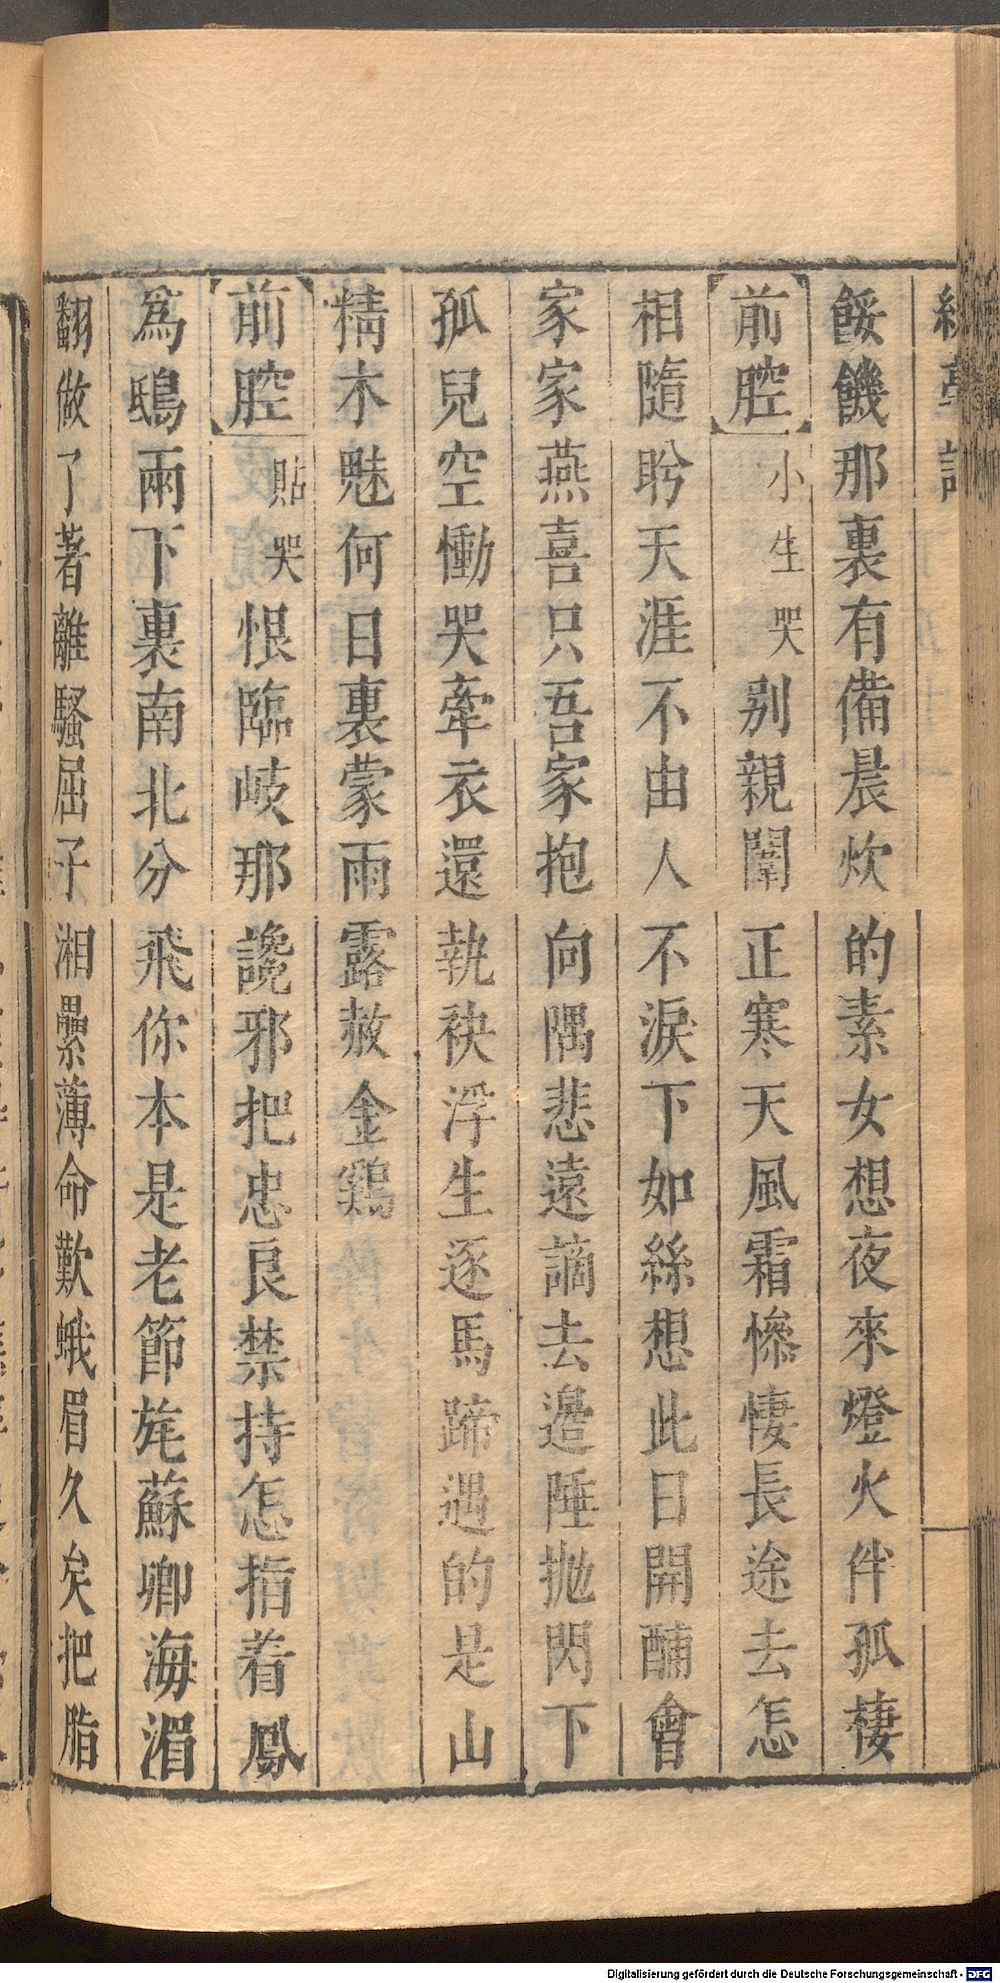 餒饑那裏有備晨炊的素女想夜來燈火伴孤棲
前腔 小生哭 别親闈正寒天風霜慘悽長途去怎
相隨盻天涯不由人不淚下如絲想此日開酺會
家家燕喜只吾家抱向隅悲遠謫去邉陲抛閃下
孤兒空慟哭牽衣還執袂浮生逐馬蹄遇的是山
精木魅何日裏蒙雨露赦金鷄
前腔 貼哭 恨臨岐那讒邪把忠良禁持怎指着鳳
爲鴟兩下裏南北分飛你本是老節旄蘇卿海湄
翻做了著離騷屈子湘纍薄命歎蛾眉久矣把脂
Digitalisierung gefördert durch die Deutsche Forschungsgemeinschaft - DFG